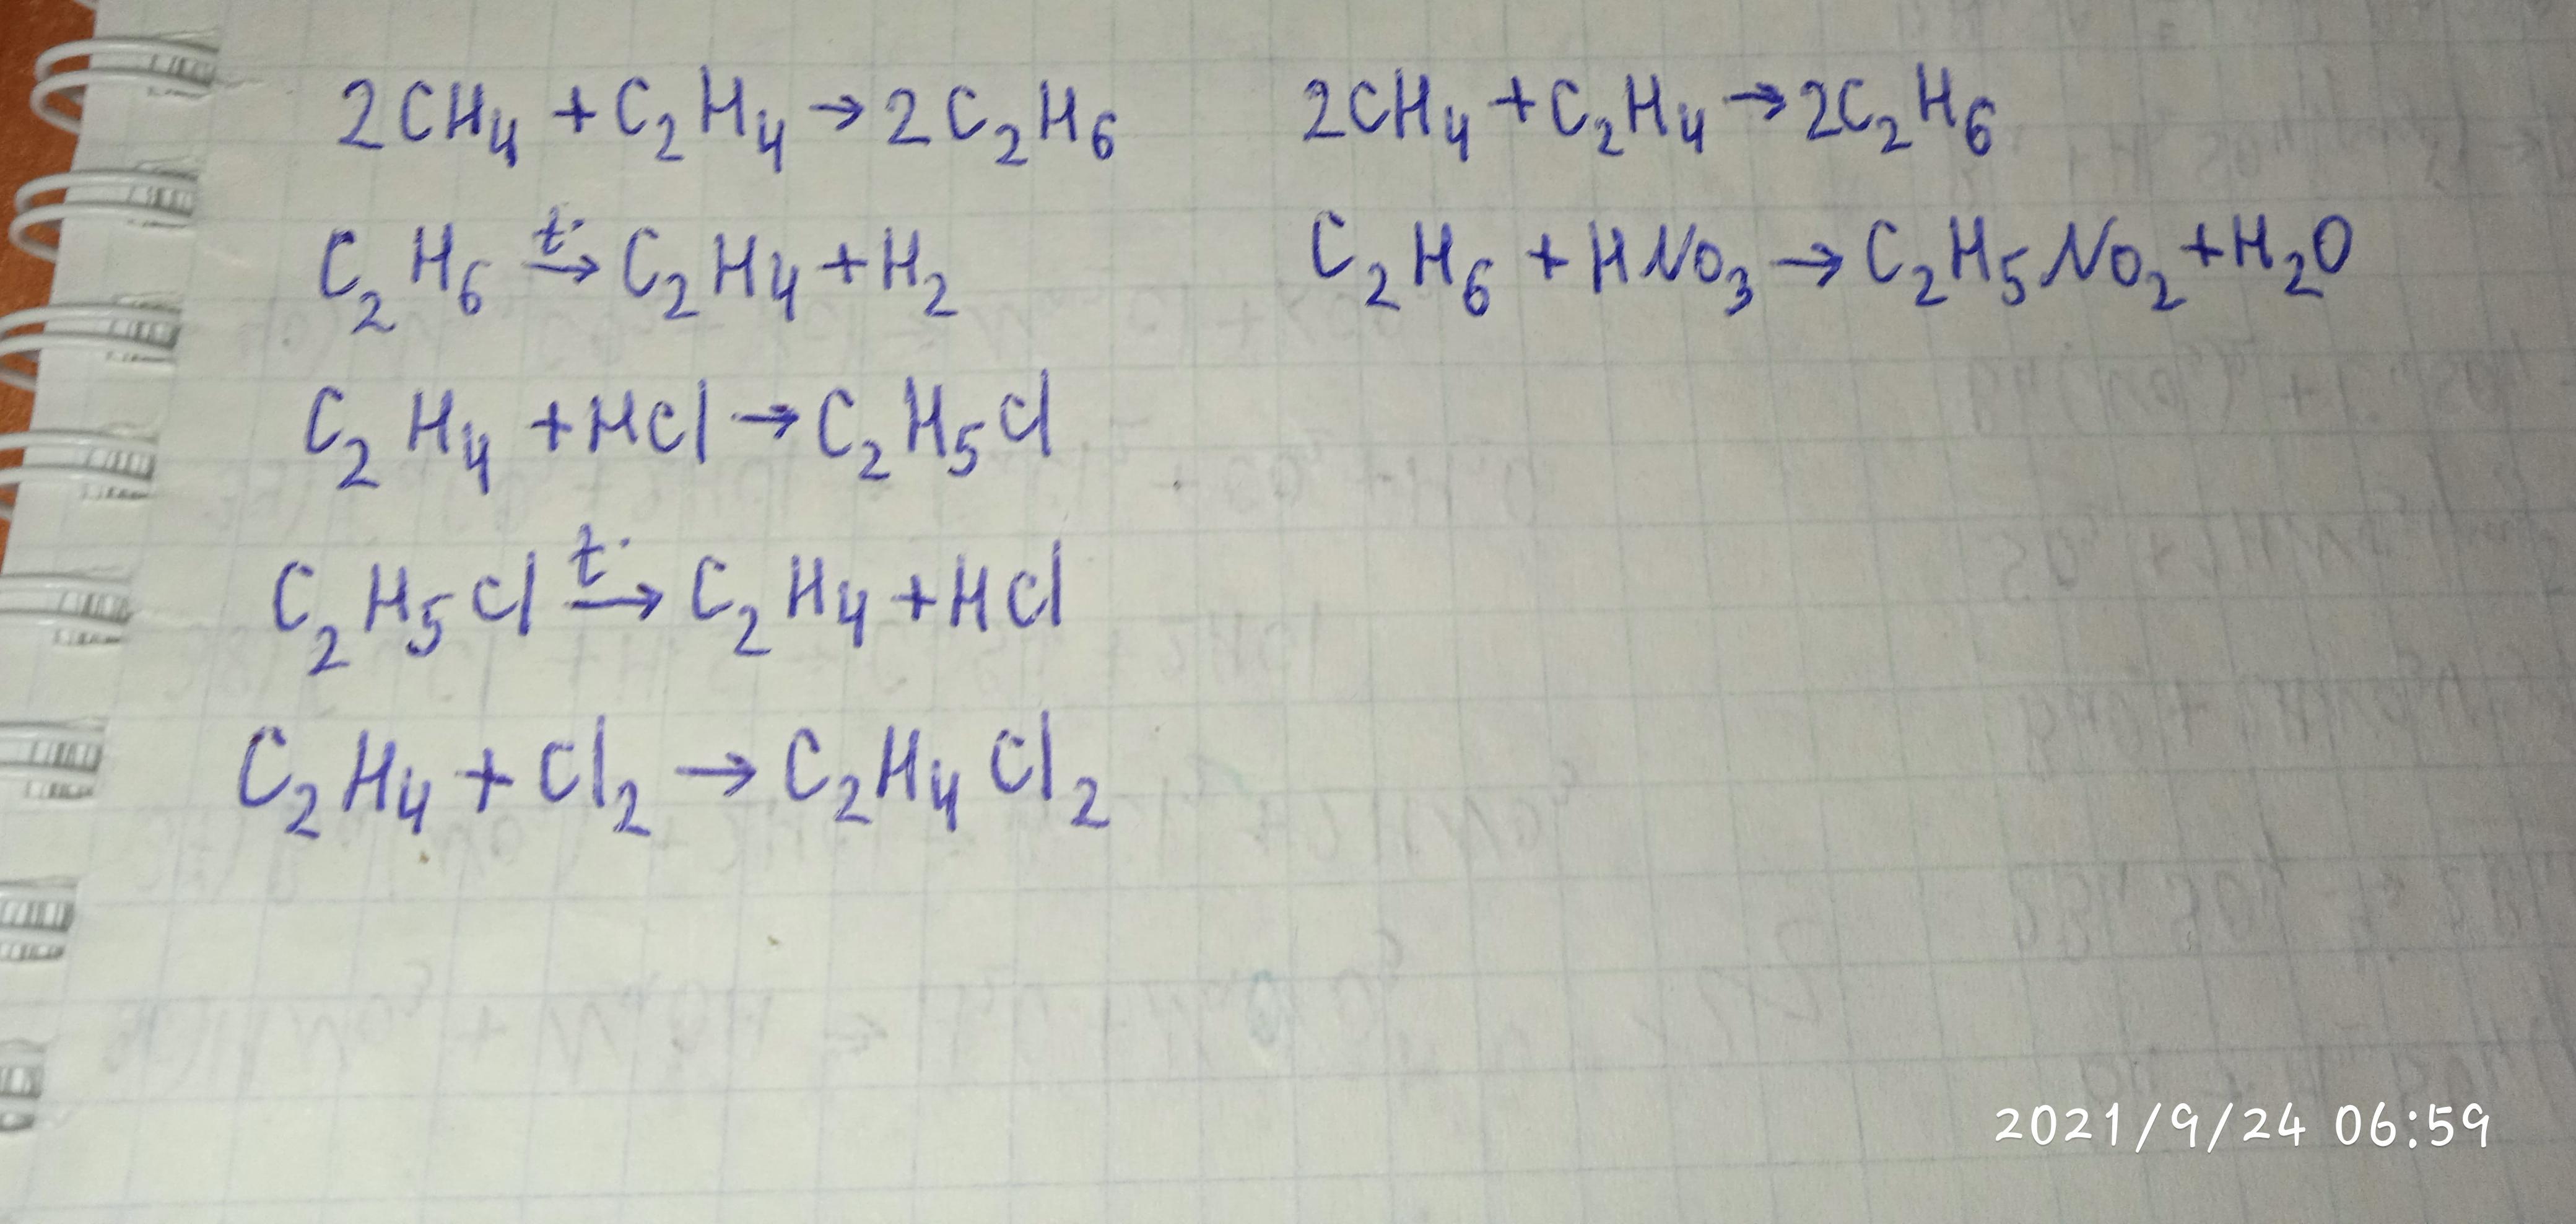 2CH₄ + C₂H₄ → 2C₂H₆
C₂H₆ t° → C₂H₄ + H₂
C₂H₄ + HCl → C₂H₅Cl
C₂H₅Cl t° → C₂H₄ + HCl
C₂H₄ + Cl₂ → C₂H₄Cl₂
2CH₄ + C₂H₄ → 2C₂H₆
C₂H₆ + HNO₃ → C₂H₅NO₂ + H₂O
2021/9/24 06:59